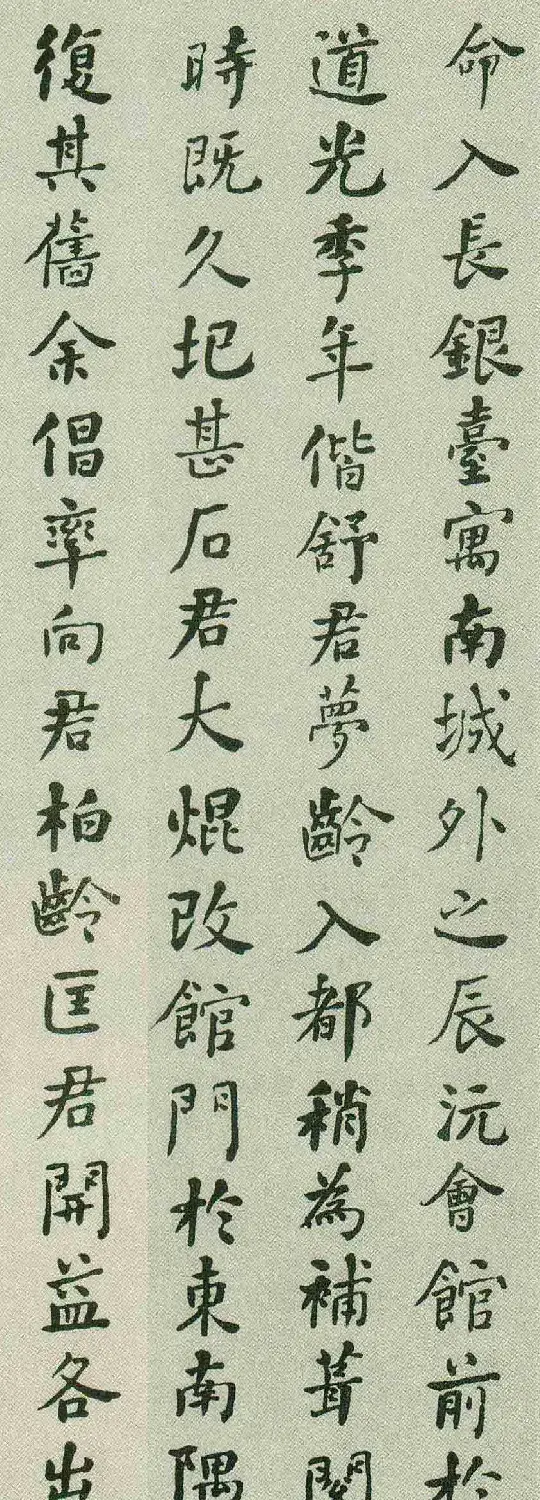 命入長銀臺寓南城外之辰沅會館前於
道光季年偕舒君夢齡入都稍為補葺閱
時既久圮甚石君大焜改館門於東南隅
復其舊余倡率向君柏齡匡君開益各出